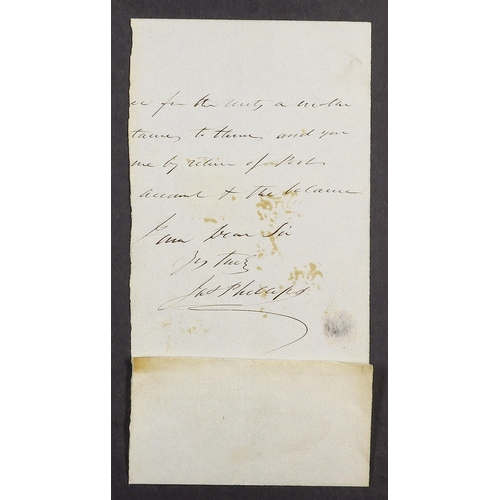 for the unity a mother
to them, and you
me by return of Post
account & the balance
I am Dear Sir
Yrs truly
Jas Phillips